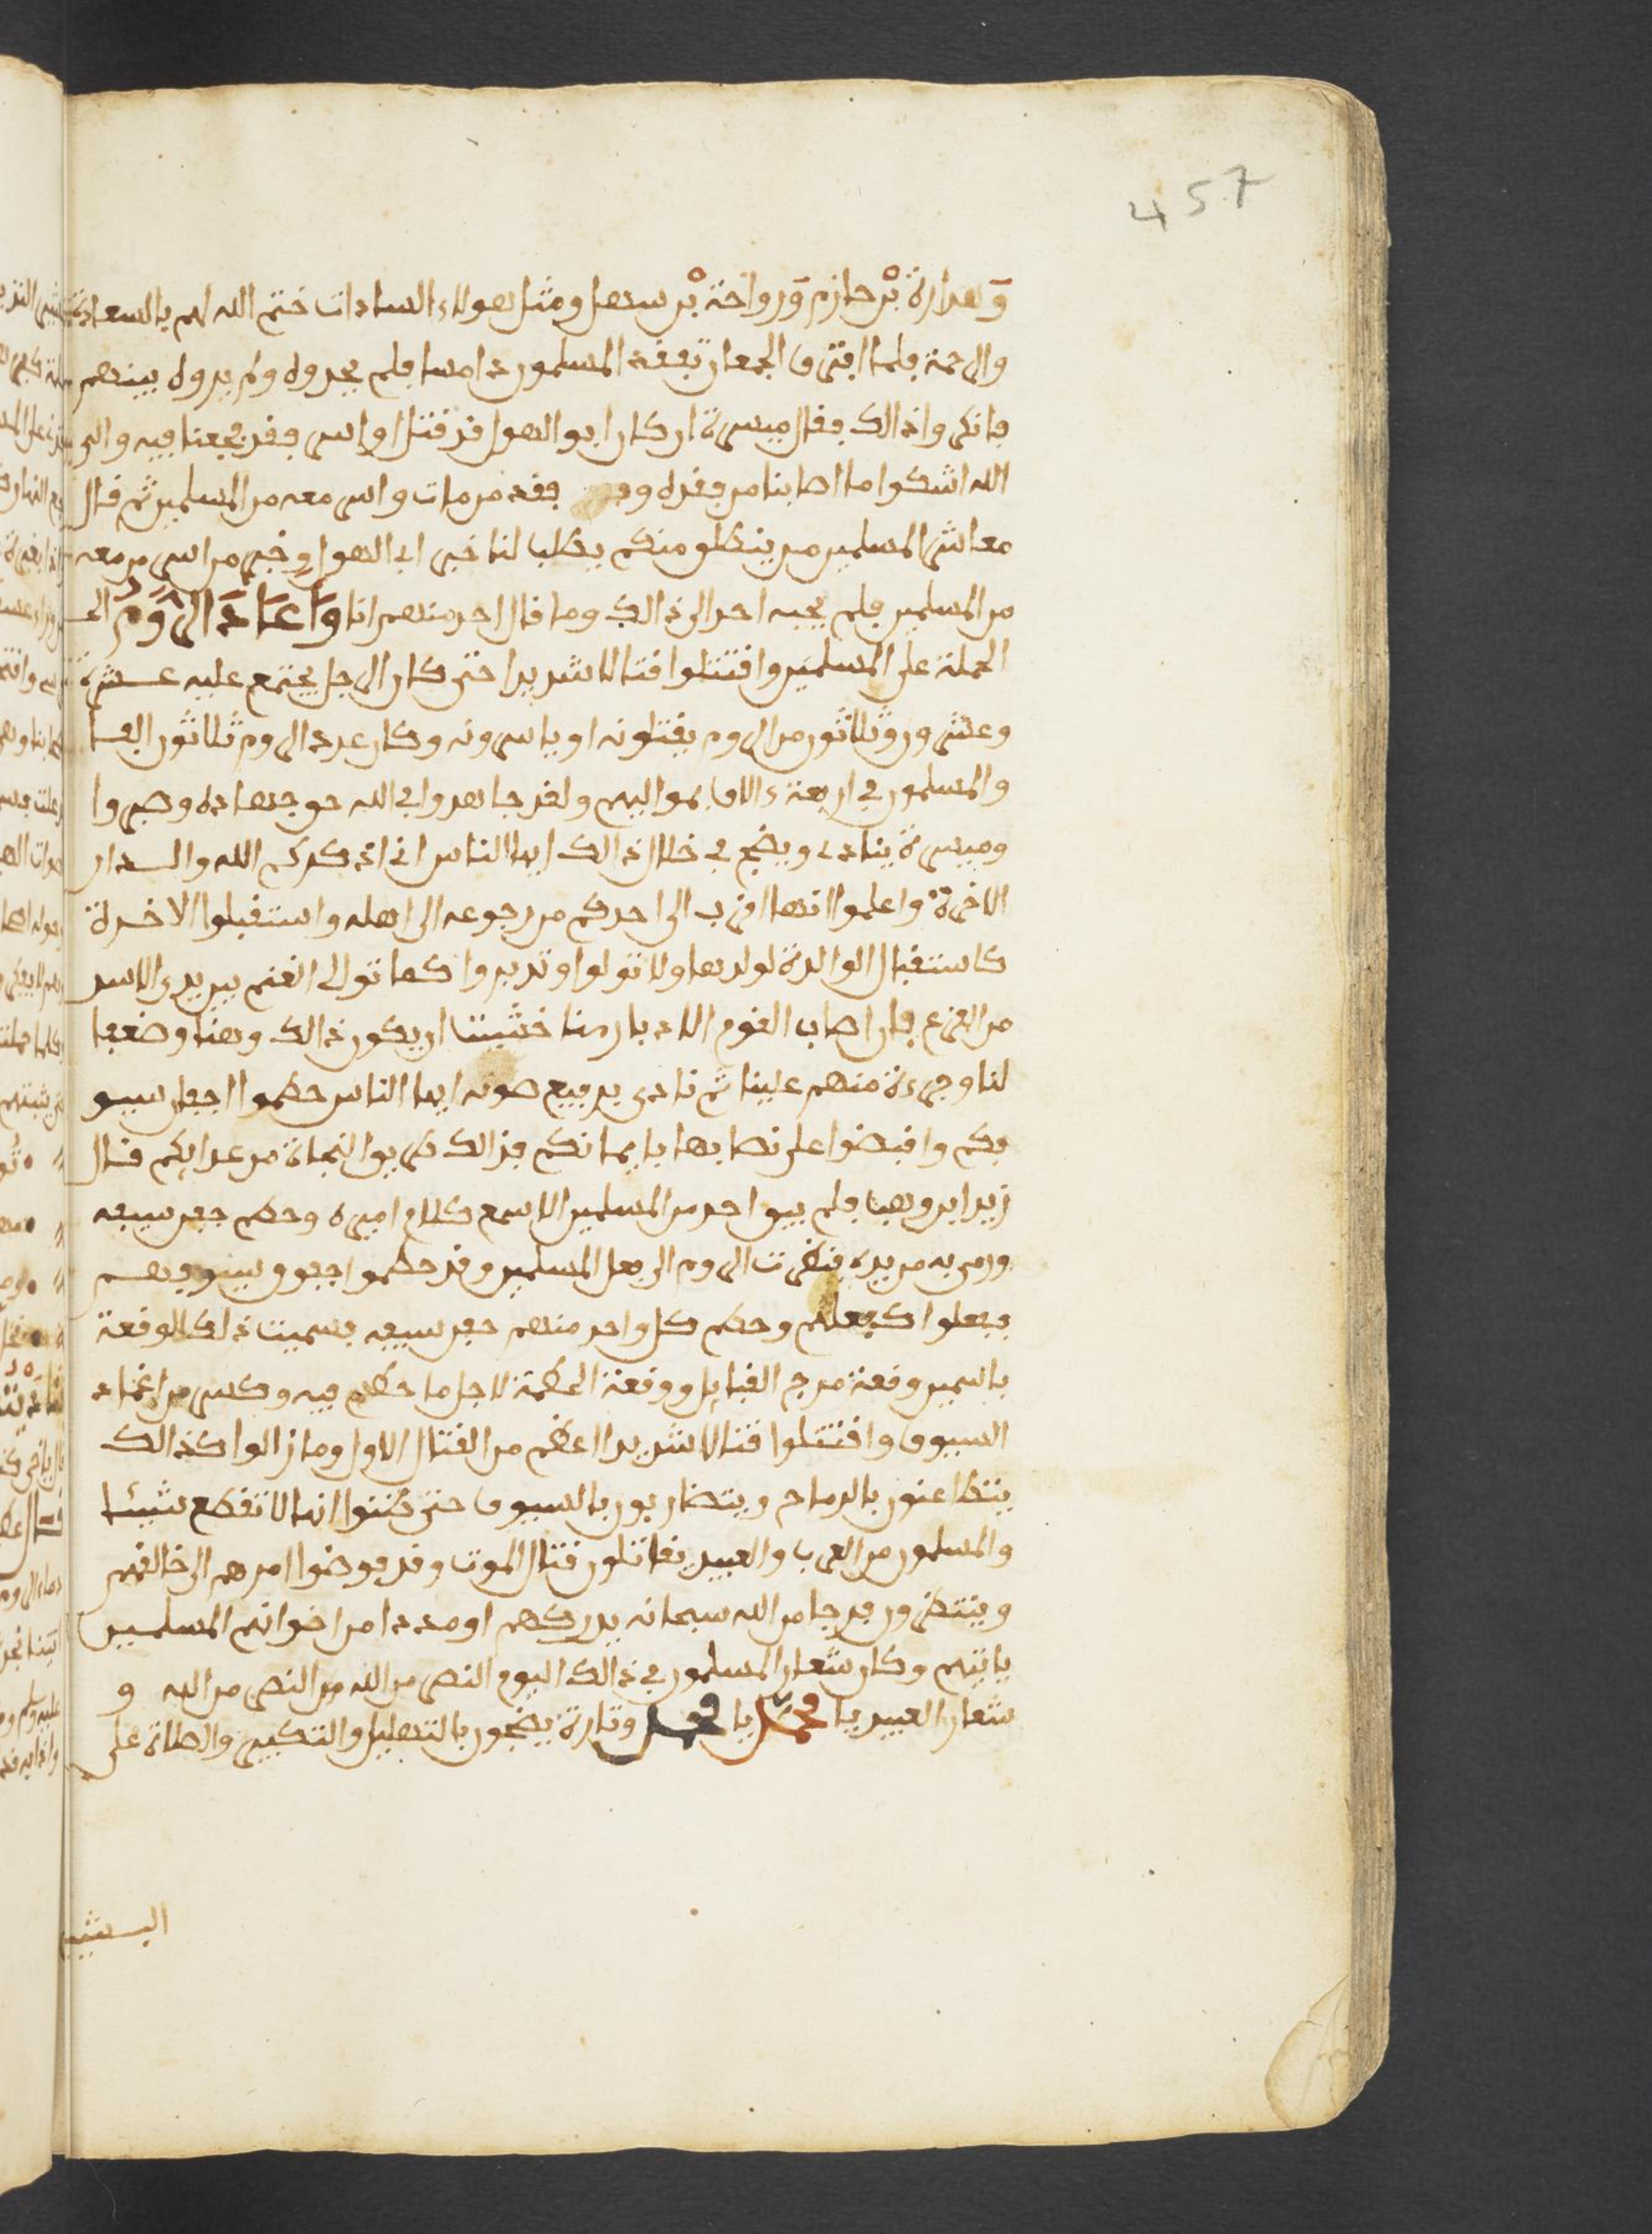 457
وَهدارة بْن حازم وَرواحة بْن سهل ومثل هولاء السادات ختم الله لهم بالسعادة
والرحمة فلما افترق الجمعان تفقد المسلمون دامسا فلم يجدوه ولم يروه بينهم
فانكروا ذالك فقال ميسرة ان كان ابو الهول قد قتل او اسر فقد فجعنا فيه والى
الله اشكوا ما اصابنا من فقده وفـ فقد من مات واسر معه من المسلمين ثم قال
معاشر المسلمين من ينطلق منكم يطلب لنا خبر ابي الهول وخبر من اسر من معه
من المسلمين فلم يجبه احد الى ذالك وما قال احد منهم انا وَاَعَادَ الرُّومُ الى
الحملة على المسلمين وافتتلوا قتالا شديدا حتى كان الرجل يجتمع عليه عشرة
وعشرون وثلاثون من الروم يقتلونه او ياسرونه وكان عدد الروم ثلاثون الفا
والمسلمون في اربعة ءالاف مواليهم ولقد جاهدوا في الله حق جهاده وصبروا
وميسرة ينادي ويضج في خلال ذالك ايها الناس اني اذكركم الله والدار
الاخرة واعلموا انها اقرب الى احدكم من رجوعه الى اهله واستقبلوا الاخرة
كاستقبال الوالدة لولدها ولا تولوا وتدبروا كما تولى الغنم بين يدي الاسد
من الفزع فان اصاب القوم الادبار منا خشيت ان يكون ذالك وهنا وضعفا
لنا وجرءة منهم علينا ثم نادى برفيع صوته ايها الناس حطموا اجفان سيو
فكم واقبضوا على نصابها بايمانكم فذالك طريق النجاة من عدايكم قال
زيد ابن وهب فلم يبق احد من المسلمين الا سمع كلام اميره وحطم جفن سيفه
ورمى به من يده فنظرت الروم الى فعل المسلمين وقد حطموا جفون سيوفهم
ففعلوا كفعلهم وحطم كل واحد منهم جفن سيفه فسميت ذلك الوقعة
باسمين وقعة مرج القبايل ووقعة الحطمة لاجل ما حطم فيه وكسر من اغماد
السيوف وافتتلوا قتالا شديدا اعظم من القتال الاول وما زالوا كذالك
يتطاعنون بالرماح ويتضاربون بالسيوف حتى ظننوا انها لا تقطع شيئا
والمسلمون من العرب والعبيد يقاتلون قتال الموت وقد فوضوا امرهم الى خالقهم
وينتظرون فرجا من الله سبحانه يدركهم او مددا من اخوانهم المسلمين
ياتيهم وكان شعار المسلمون في ذالك اليوم النصر من الله من النصر من الله و
شعار العبيد يا محمد يا محمد وتارة يضجون بالتهليل والتكبير والصلاة على
البشير